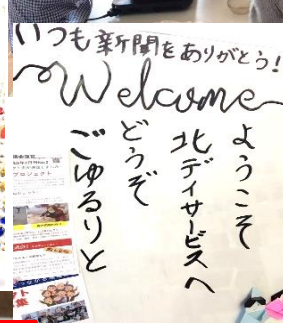 いつも新聞をありがとう!
Welcome
ようこそ
北デイサービスへ
どうぞ
ごゆるりと
プロジェクト